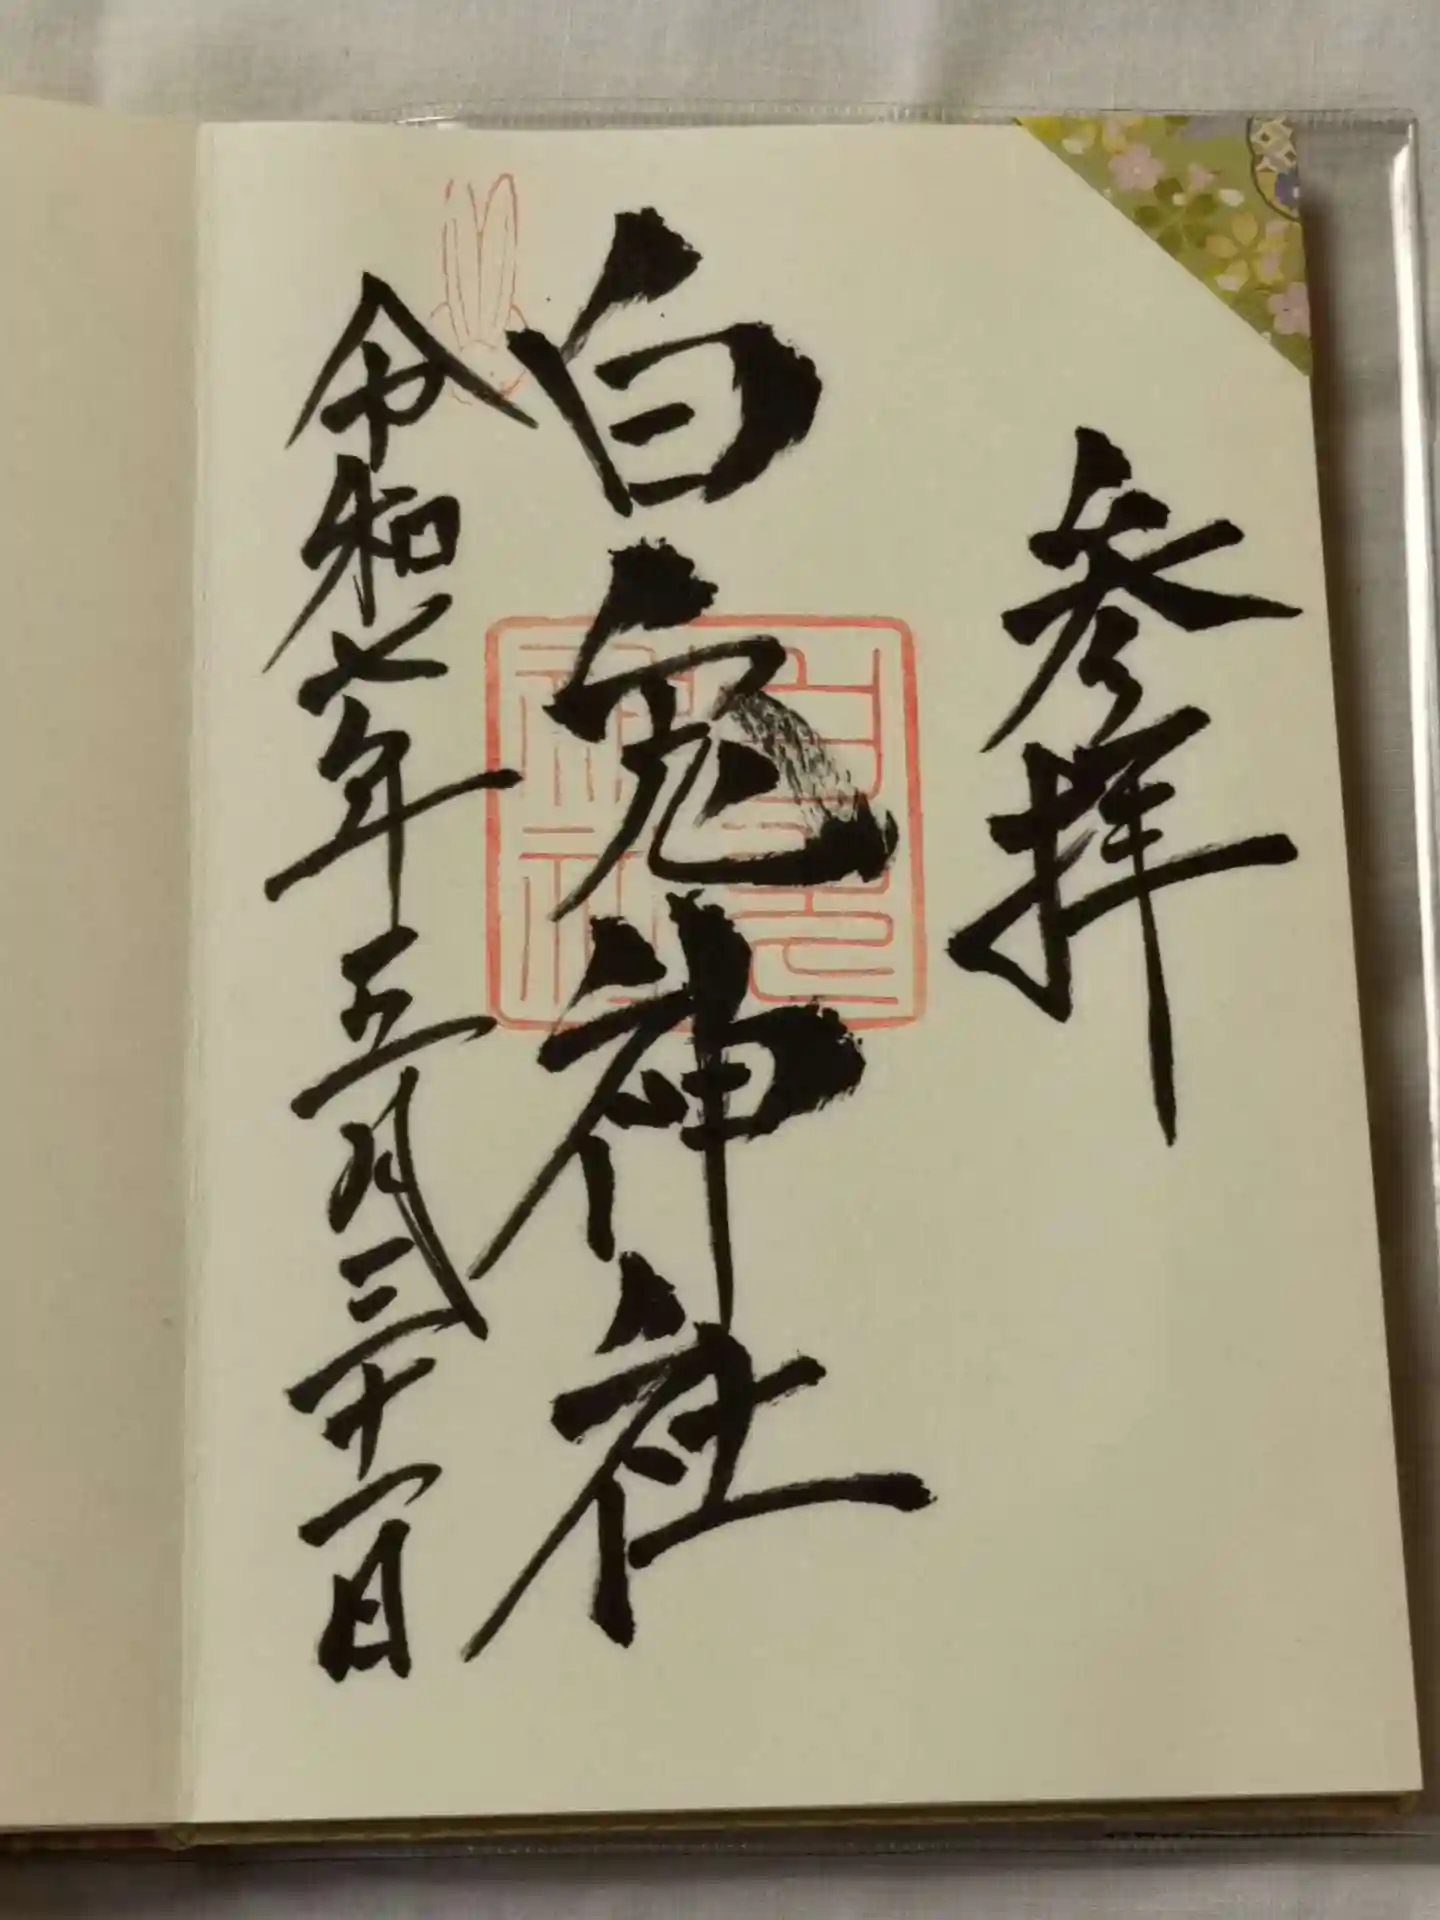 参拝
白兎神社
令和七年五月三十一日
白兎
神社